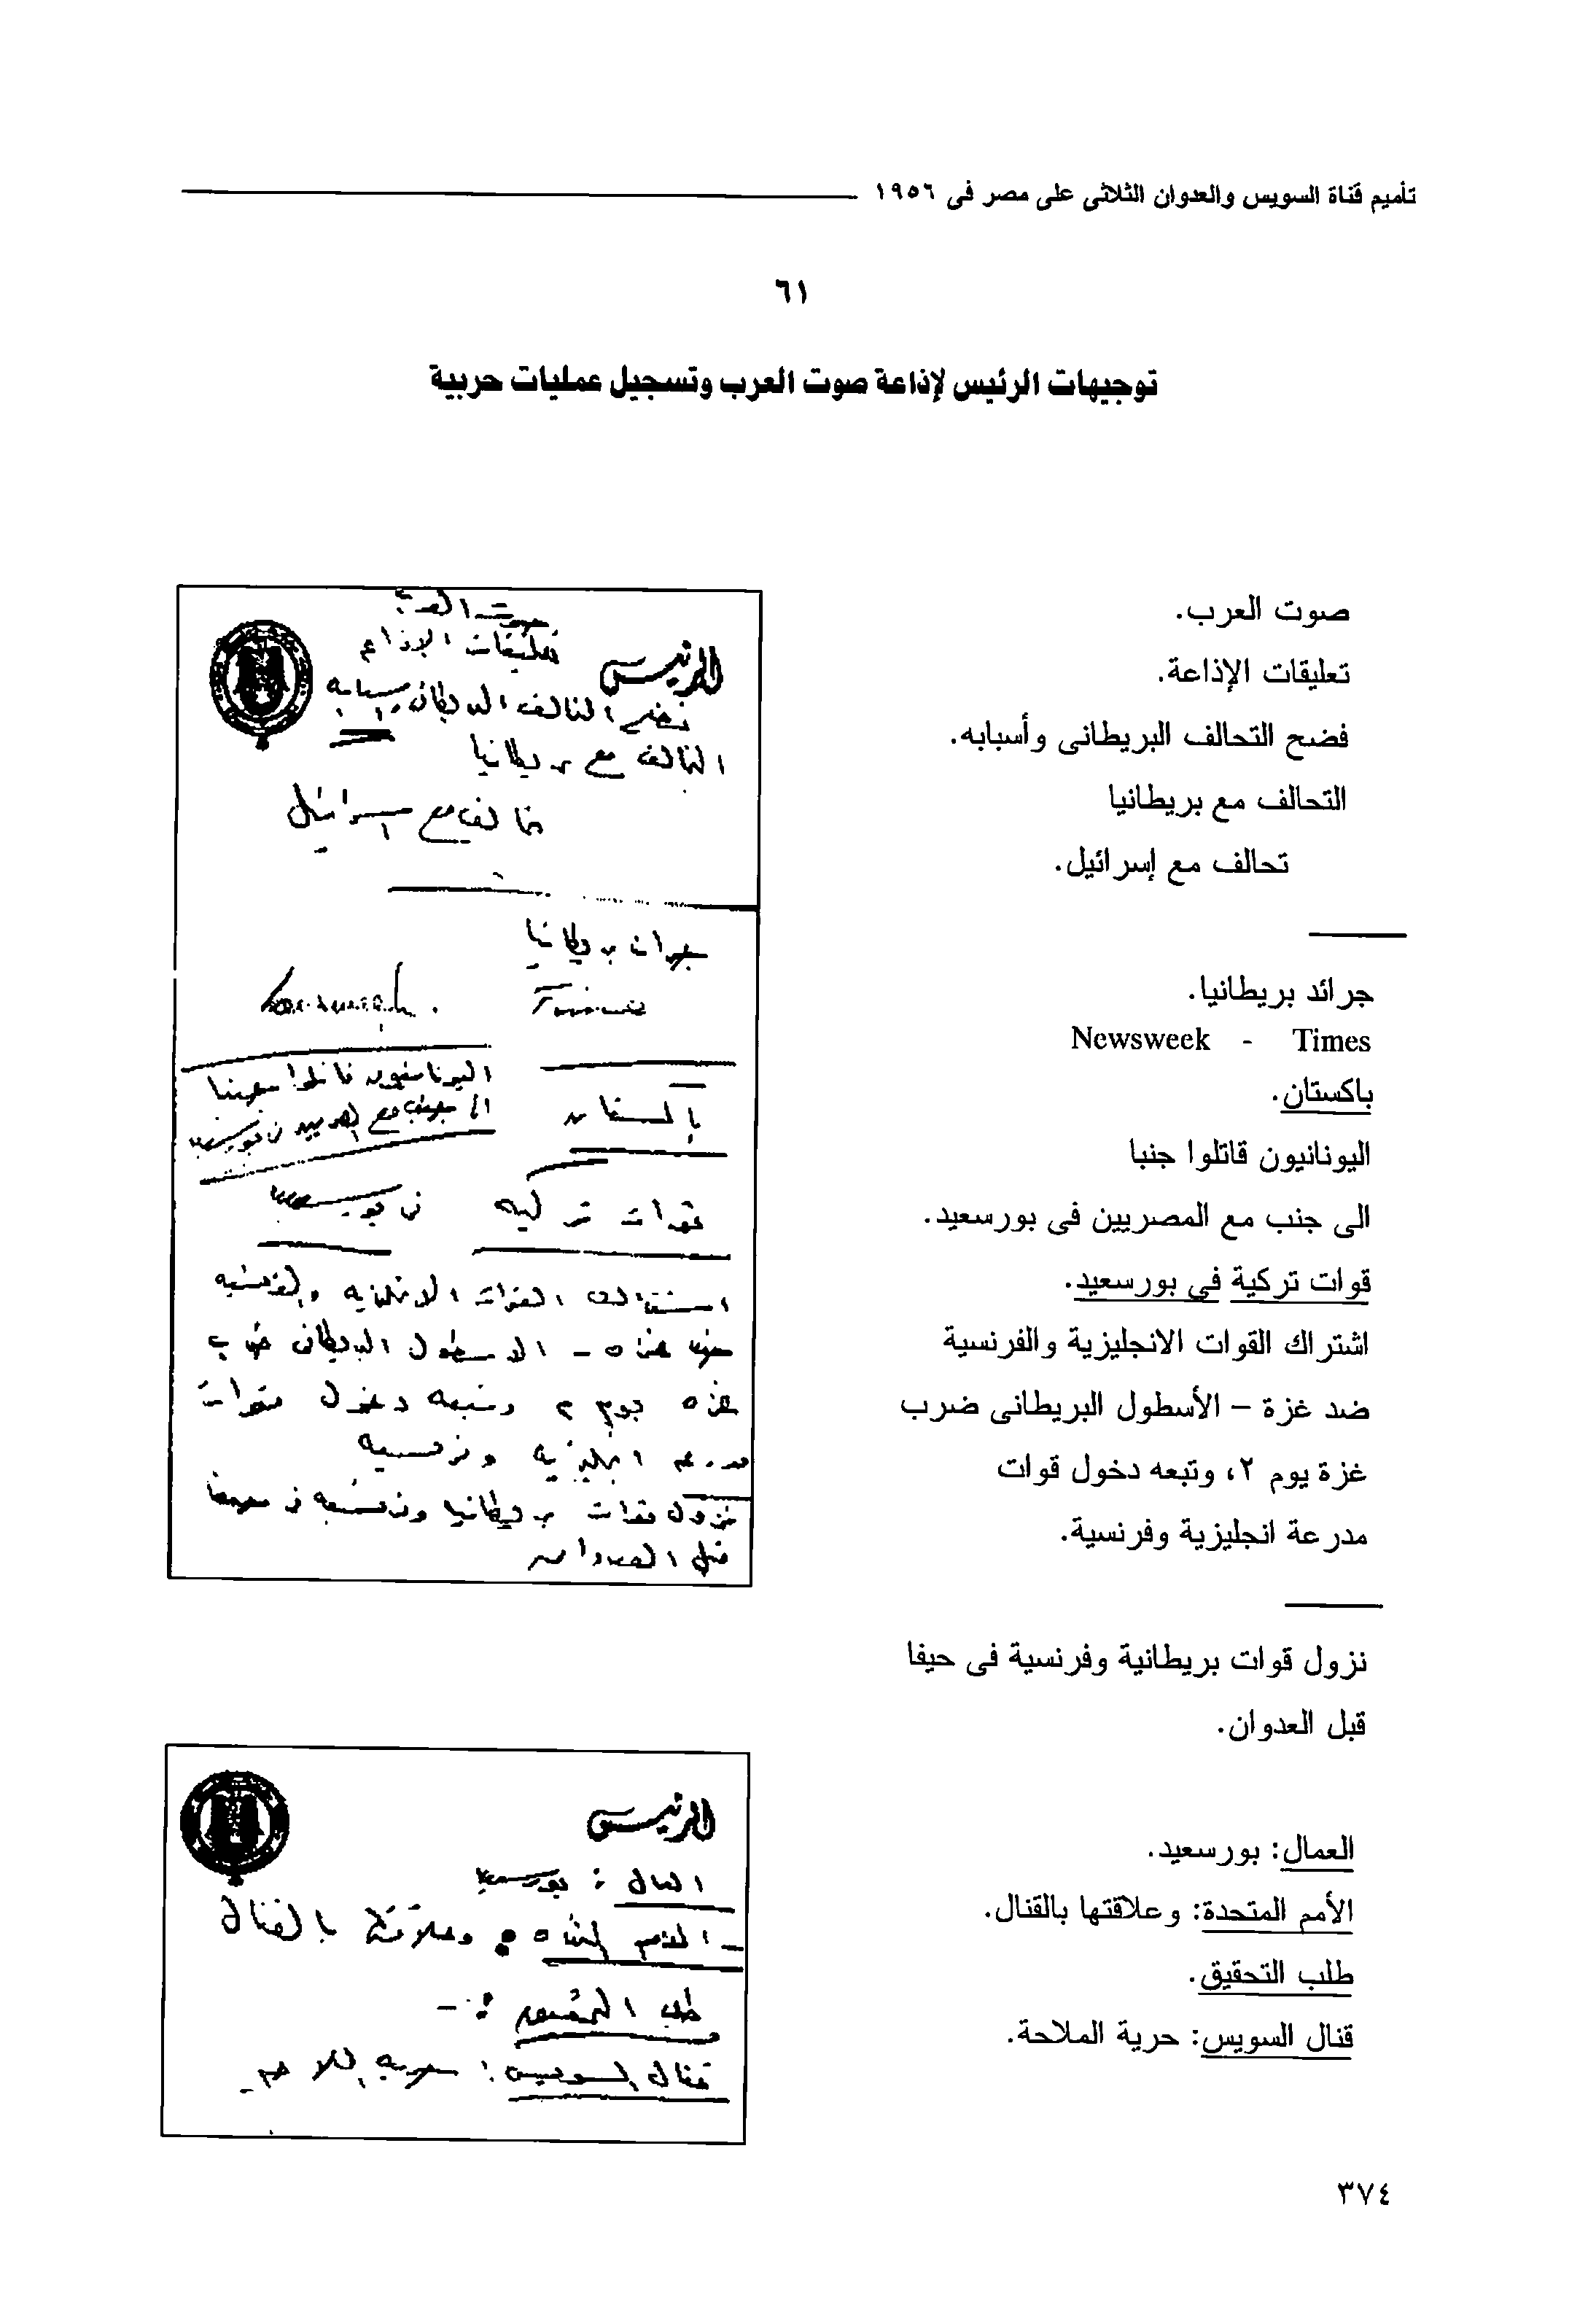 تأميم قناة السويس والعدوان الثلاثى على مصر فى ١٩٥٦
٦١
توجيهات الرئيس لإذاعة صوت العرب وتسجيل عمليات حربية
صوت العرب.
تعليقات الإذاعة.
فضح التحالف البريطانى وأسبابه.
التحالف مع بريطانيا
تحالف مع إسرائيل.
جرائد بريطانيا.
Newsweek - Times
باكستان.
اليونانيون قاتلوا جنبا
الى جنب مع المصريين فى بورسعيد.
قوات تركية فى بورسعيد.
اشتراك القوات الانجليزية والفرنسية
ضد غزة – الأسطول البريطانى ضرب
غزة يوم ٢، وتبعه دخول قوات
مدرعة انجليزية وفرنسية.
نزول قوات بريطانية وفرنسية فى حيفا
قبل العدوان.
العمال: بورسعيد.
الأمم المتحدة: وعلاقتها بالقنال.
طلب التحقيق.
قنال السويس: حرية الملاحة.
صوت العرب
تعليقات الإذاعة
الرئيس
التحالف مع بريطانيا
تحالف مع اسرائيل
الرئيس
العمال : بورسعيد
طلب التحقيق : -
قنال السويس : حرية الملاحة
٣٧٤